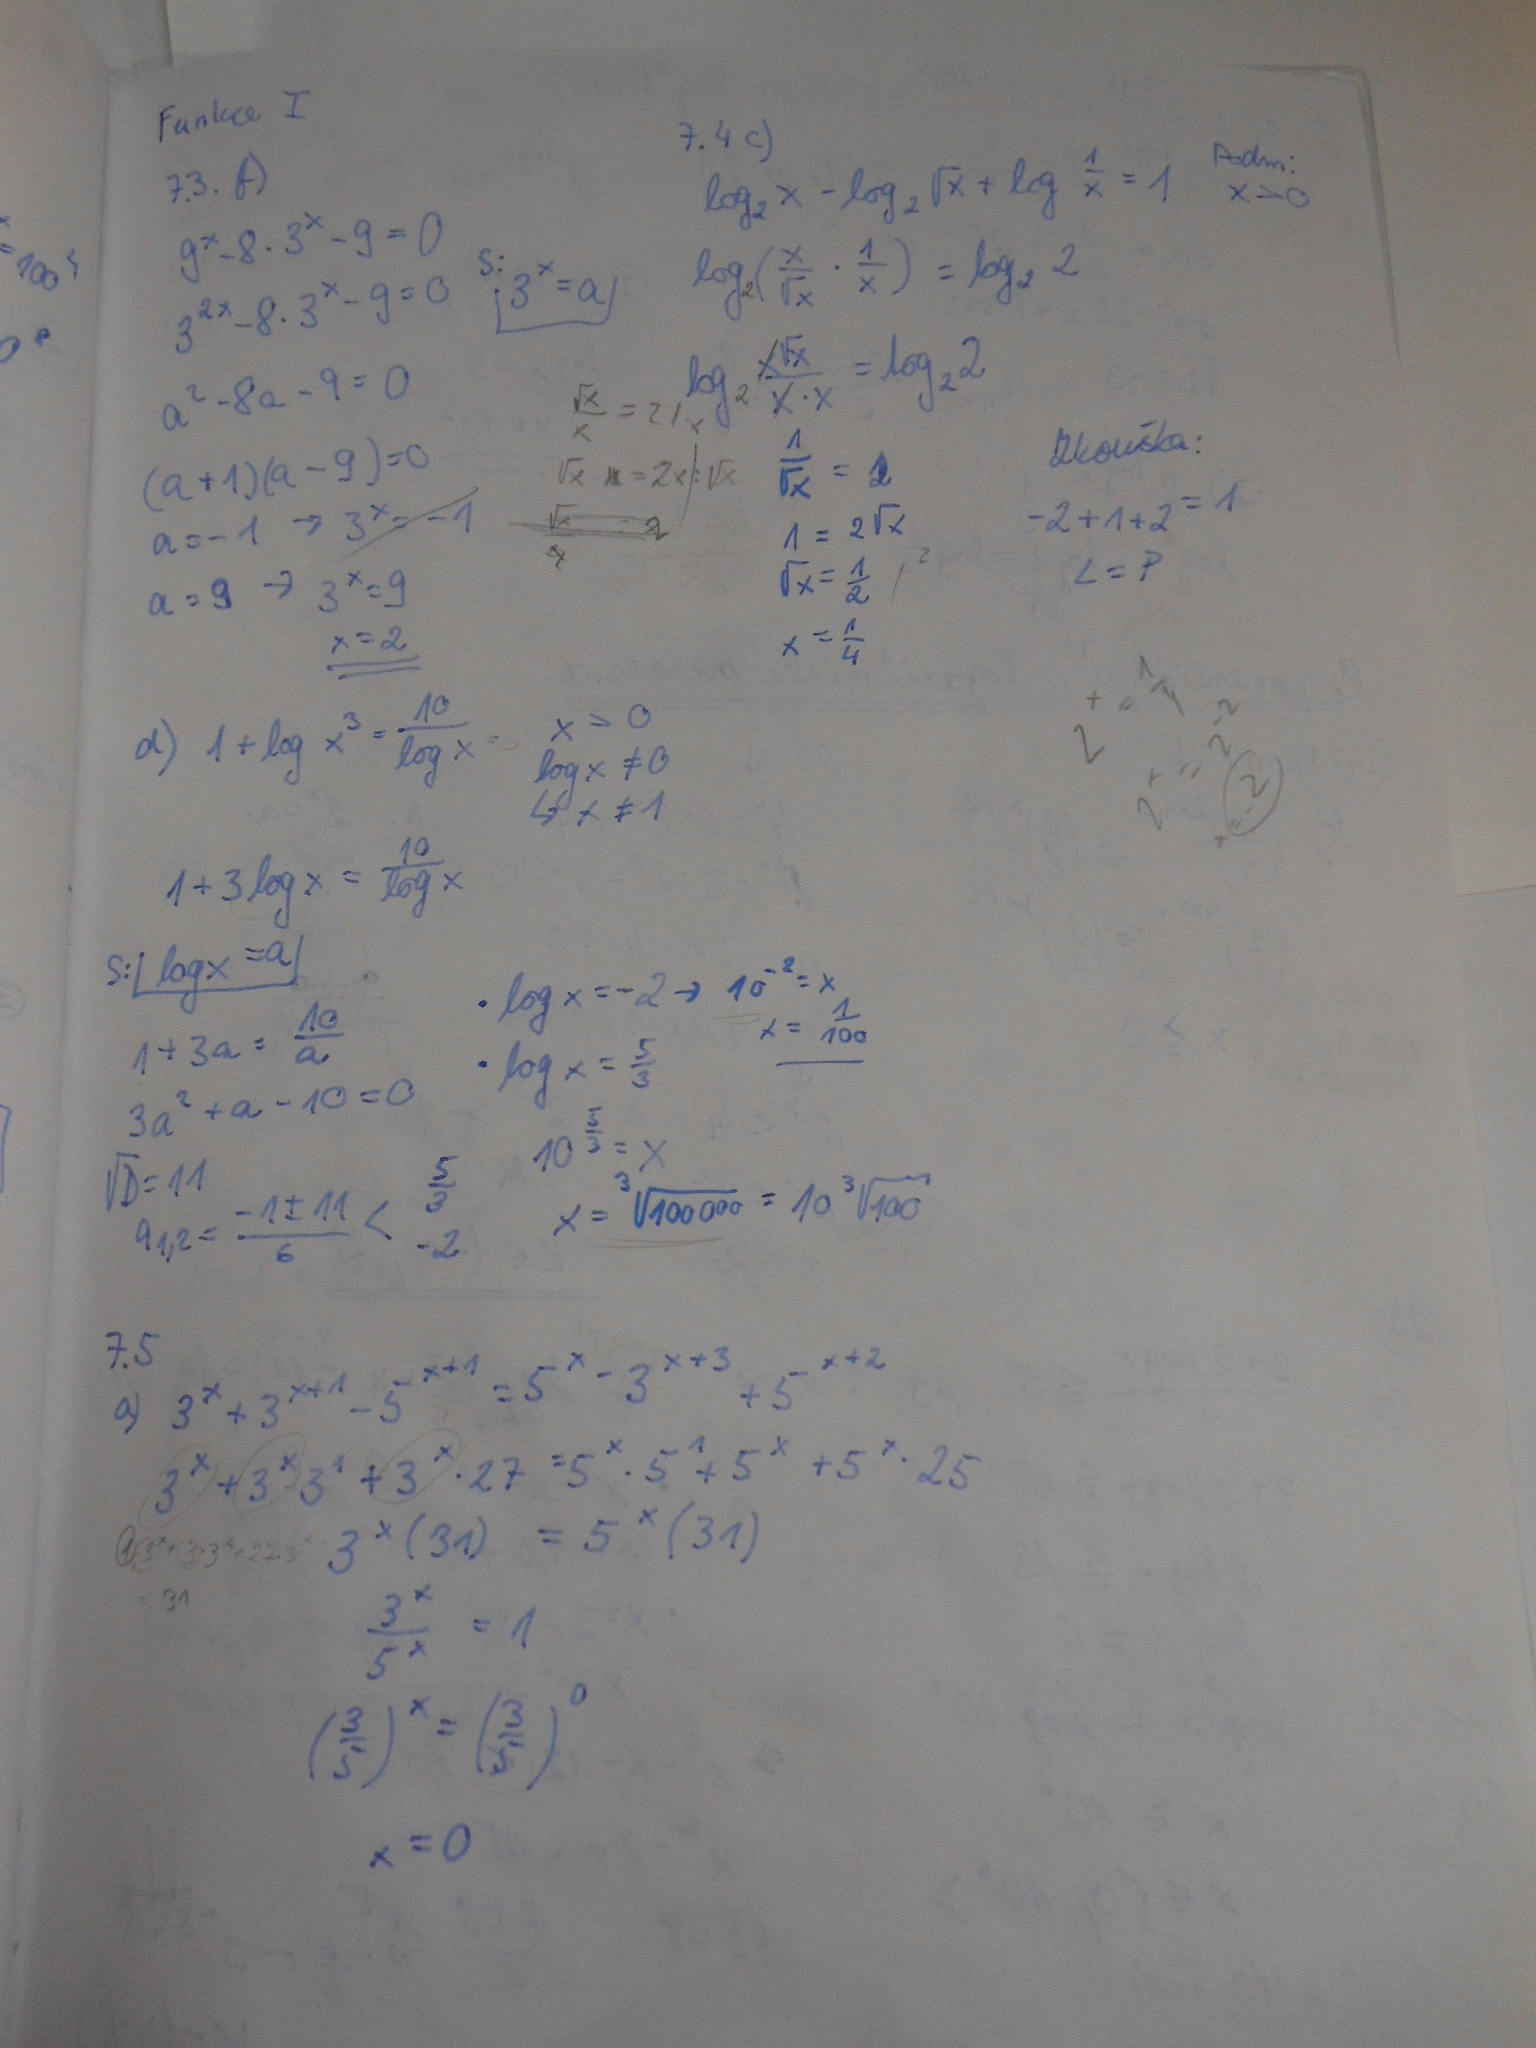 Funkce I
7.3. f)
9^x - 8 · 3^x - 9 = 0
3^2x - 8 · 3^x - 9 = 0
S: 3^x = a
a² - 8a - 9 = 0
(a + 1)(a - 9) = 0
a = -1 → 3^x = -1
a = 9 → 3^x = 9
x = 2
√x/x = 2 / x
√x = 2x : √x
7.4 c)
log₂ x - log₂ √x + log 1/x = 1
Podm:
x > 0
log₂ (x/√x · 1/x) = log₂ 2
log₂ x√x/x·x = log₂ 2
1/√x = 2
1 = 2√x
√x = 1/2 /²
x = 1/4
Zkouška:
-2 + 1 + 2 = 1
L = P
2^+ = 1/4
2^+ = 2^-2
+ = -2
d) 1 + log x³ = 10/log x
x > 0
log x ≠ 0
↳ x ≠ 1
1 + 3 log x = 10/log x
S: log x = a
1 + 3a = 10/a
3a² + a - 10 = 0
√D = 11
a₁,₂ = -1 ± 11/6 < 5/3
-2
· log x = -2 → 10^-2 = x
x = 1/100
· log x = 5/3
10^5/3 = x
x = ³√100 000 = 10 ³√100
7.5
a) 3^x + 3^x+1 - 5^x+1 = 5^x - 3^x+3 + 5^x+2
3^x + 3^x 3^1 + 3^x · 27 = 5^x · 5^1 + 5^x + 5^x · 25
3^x (31) = 5^x (31)
① 3^x + 3·3^x + 27·3^x
= 31
3^x/5^x = 1
(3/5)^x = (3/5)^0
x = 0